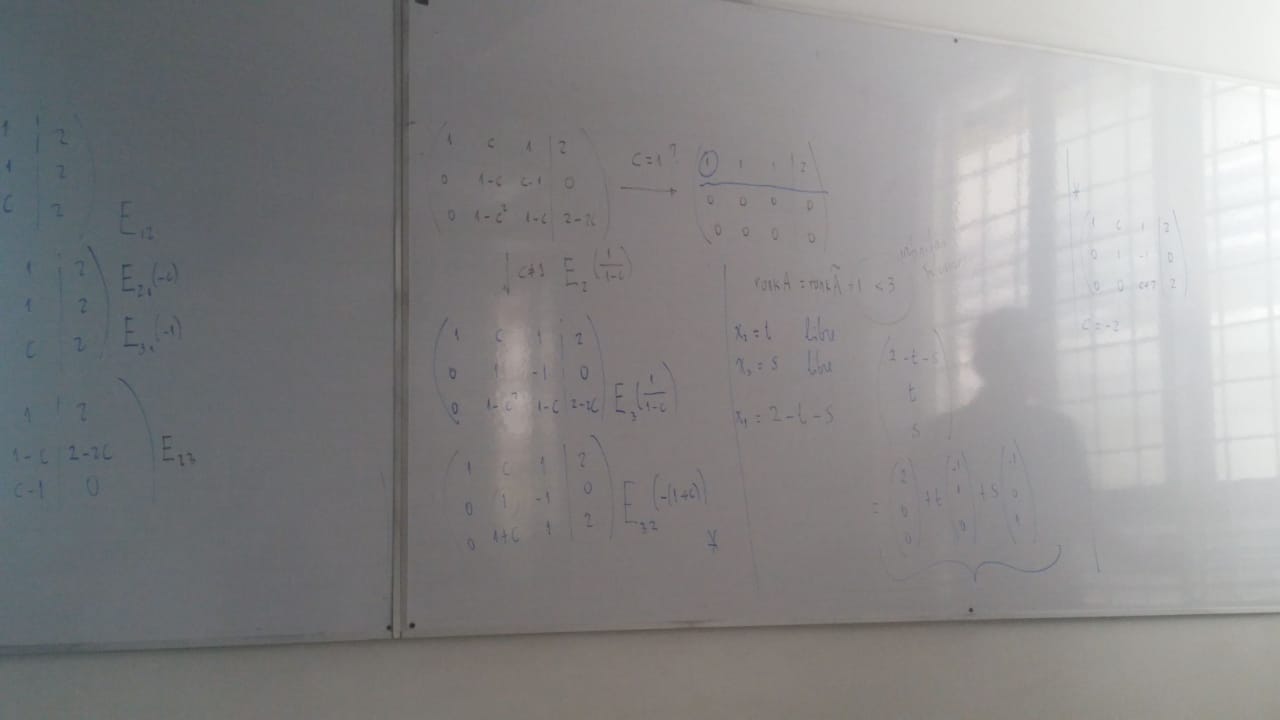 1 | 2
1 | 2
c | 2
E₁₂
1 | 2
1 | 2
c | 2
E₂₁(-c)
E₃₁(-1)
1 | 2
1-c | 2-2c
c-1 | 0
E₂₃
1 c 1 | 2
0 1-c c-1 | 0
0 1-c² 1-c | 2-2c
c=1?
1 1 1 | 2
0 0 0 0
0 0 0 0
c≠1 E₂(1/(1-c))
1 c 1 | 2
0 1 -1 | 0
0 1-c² 1-c | 2-2c
E₃(1/(1-c))
1 c 1 | 2
0 1 -1 | 0
0 1+c 1 | 2
E₃₂(-(1+c))
*
x₂ = t libre
x₃ = s libre
x₁ = 2-t-s
2-t-s
t
s
= (2 0 0) + t (-1 1 0) + s (-1 0 1)
*
1 c 1 | 2
0 1 -1 | 0
0 0 c+2 | 2
c=-2